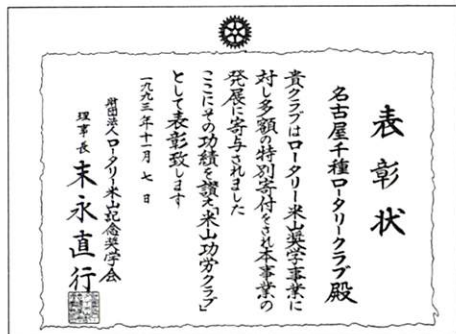 表彰状
名古屋千種ロータリークラブ殿
貴クラブはロータリー米山奨学事業に
対し多額の特別寄付をされ本事業の
発展に寄与されました
ここにその功績を讃え「米山功労クラブ」
として表彰致します
一九九三年十一月七日
財団法人ロータリー米山記念奨学会
理事長 末永直行